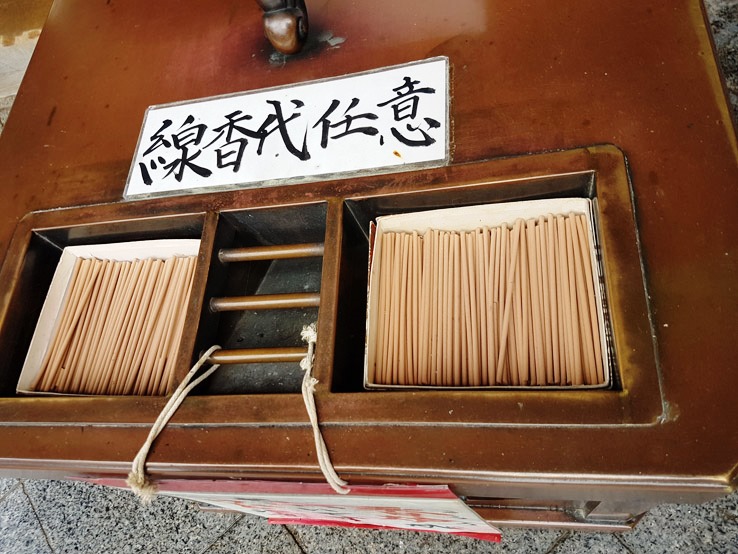 線香代任意